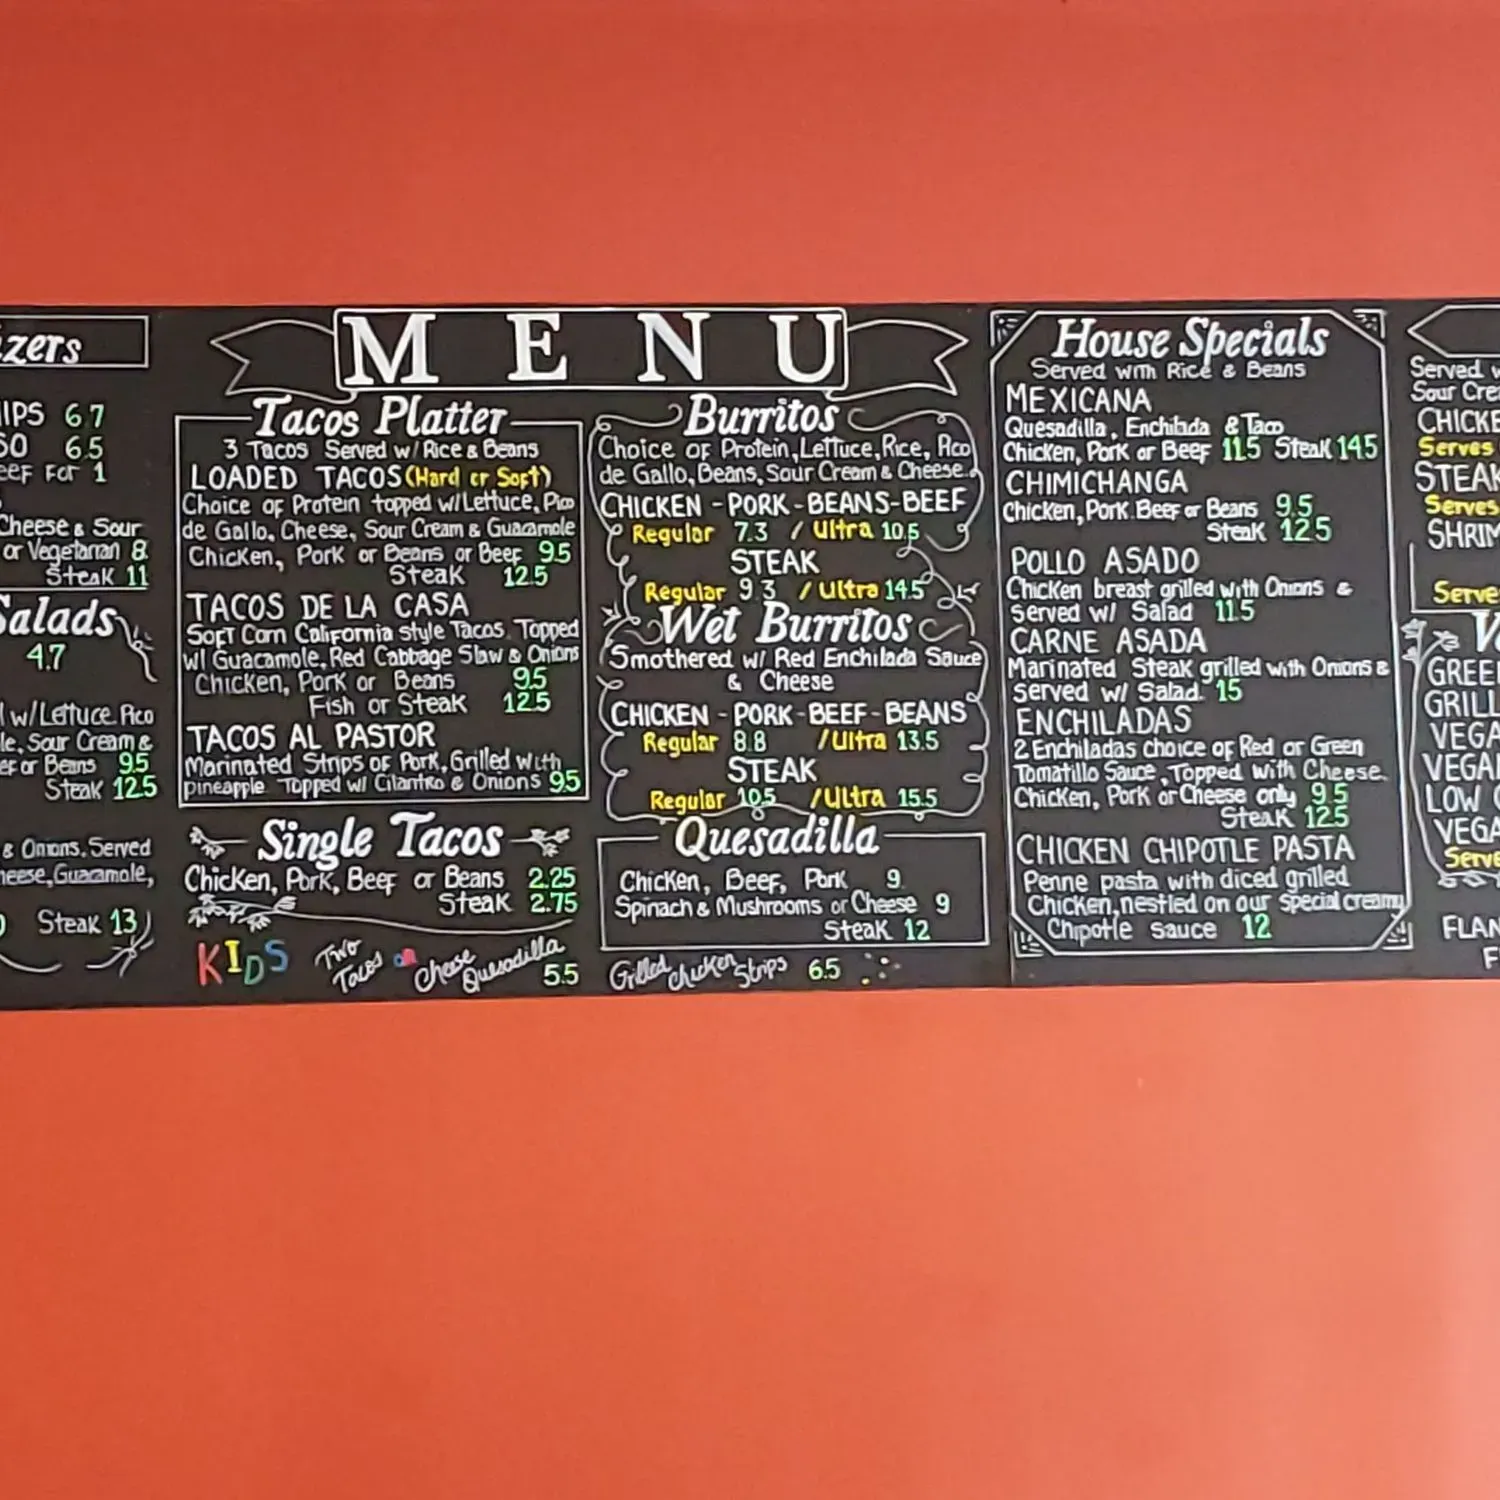 MENU
IPS 6.7
SO 6.5
For 1
Cheese & Sour
or Vegetarian 8
Steak 11
Salads
4.7
w/Lettuce, Pico
Sour Cream &
or Beans 9.5
Steak 12.5
& Onions. Served
Guacamole,
Steak 13
Tacos Platter
3 Tacos Served w/ Rice & Beans
LOADED TACOS (Hard or Soft)
Choice of Protein topped w/Lettuce, Pico
de Gallo, Cheese, Sour Cream & Guacamole
Chicken, Pork or Beans or Beef 9.5
Steak 12.5
TACOS DE LA CASA
Soft Corn California style Tacos. Topped
w/ Guacamole, Red Cabbage Slaw & Onions
Chicken, Pork or Beans 9.5
Fish or Steak 12.5
TACOS AL PASTOR
Marinated Strips of Pork, Grilled with
pineapple Topped w/ Cilantro & Onions 9.5
Single Tacos
Chicken, Pork, Beef or Beans 2.25
Steak 2.75
KIDS Two Tacos or Cheese Quesadilla 5.5
Burritos
Choice of Protein, Lettuce, Rice, Pico
de Gallo, Beans, Sour Cream & Cheese.
CHICKEN - PORK - BEANS - BEEF
Regular 7.3 / Ultra 10.5
STEAK
Regular 9.3 / Ultra 14.5
Wet Burritos
Smothered w/ Red Enchilada Sauce
& Cheese
CHICKEN - PORK - BEEF - BEANS
Regular 8.8 / Ultra 13.5
STEAK
Regular 10.5 / Ultra 15.5
Quesadilla
Chicken, Beef, Pork 9
Spinach & Mushrooms or Cheese 9
Steak 12
Grilled Chicken Strips 6.5
House Specials
Served with Rice & Beans
MEXICANA
Quesadilla, Enchilada & Taco
Chicken, Pork or Beef 11.5 Steak 14.5
CHIMICHANGA
Chicken, Pork Beef or Beans 9.5
Steak 12.5
POLLO ASADO
Chicken breast grilled with Onions &
Served w/ Salad 11.5
CARNE ASADA
Marinated Steak grilled with Onions &
Served w/ Salad. 15
ENCHILADAS
2 Enchiladas choice of Red or Green
Tomatillo Sauce, Topped with Cheese.
Chicken, Pork or Cheese only 9.5
Steak 12.5
CHICKEN CHIPOTLE PASTA
Penne pasta with diced grilled
Chicken, nestled on our special creamy
Chipotle sauce 12
Served
Sour
Serves
STEAK
Serves
LOW